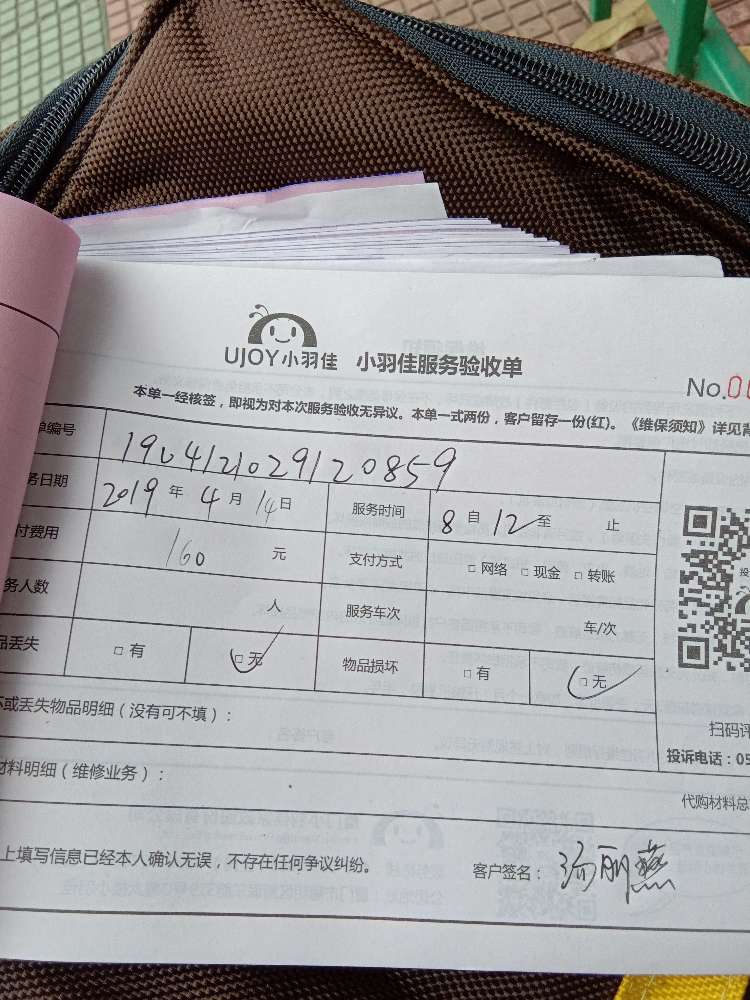 UJOY小羽佳 小羽佳服务验收单
No.00
本单一经核签，即视为对本次服务验收无异议。本单一式两份，客户留存一份(红)。《维保须知》详见背
单编号 1904121029120859
务日期 2019 年 4 月 14 日 服务时间 8 自 12 至 止
付费用 160 元 支付方式 □ 网络 □ 现金 □ 转账
务人数 人 服务车次 车/次
品丢失 □ 有 □ 无 物品损坏 □ 有 □ 无
坏或丢失物品明细（没有可不填）：
扫码评
投诉电话：05
材料明细（维修业务）：
代购材料总
上填写信息已经本人确认无误，不存在任何争议纠纷。
客户签名： 汤丽燕